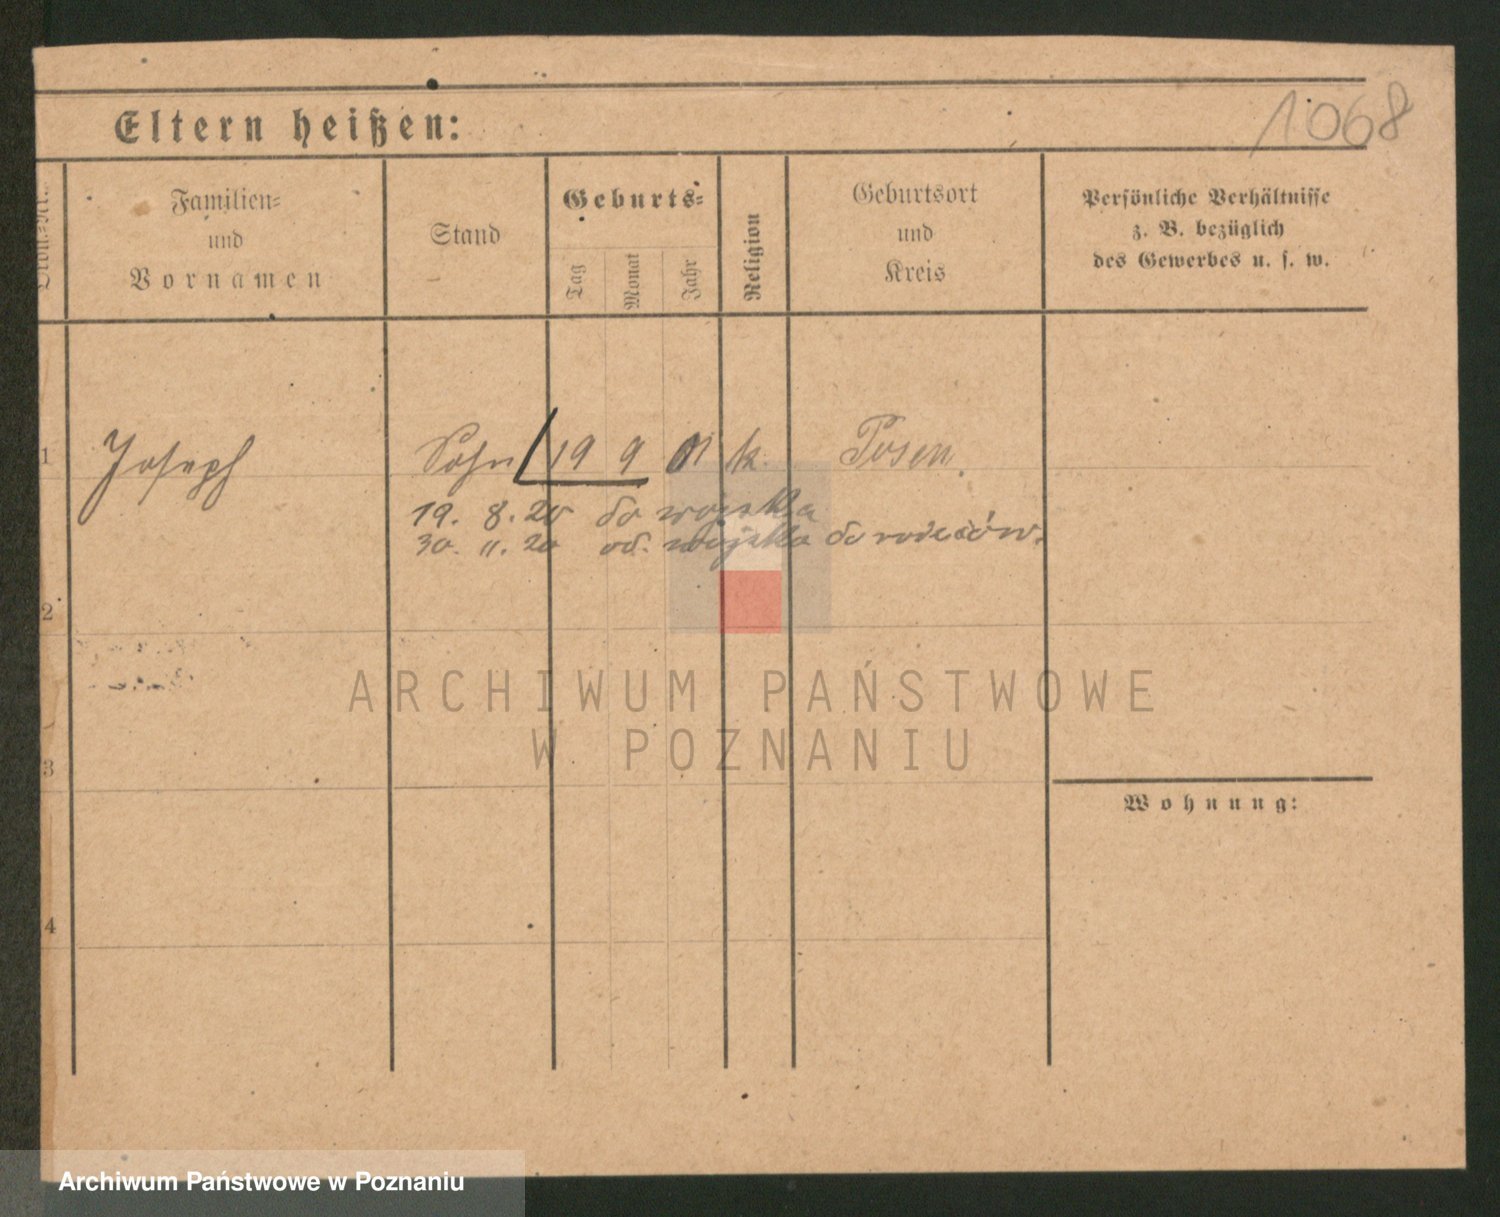 1068
Eltern heißen:
Familien=
und
Vornamen
Stand
Geburts=
Tag
Monat
Jahr
Religion
Geburtsort
und
Kreis
Persönliche Verhältnisse
z. B. bezüglich
des Gewerbes u. s. w.
1 Joseph Sohn 19 9 01 k. Posen.
19. 8. 20 do wojska
30. 11. 20 od. wojska do rodziców.
2
3
Wohnung:
4
ARCHIWUM PAŃSTWOWE
W POZNANIU
Archiwum Państwowe w Poznaniu